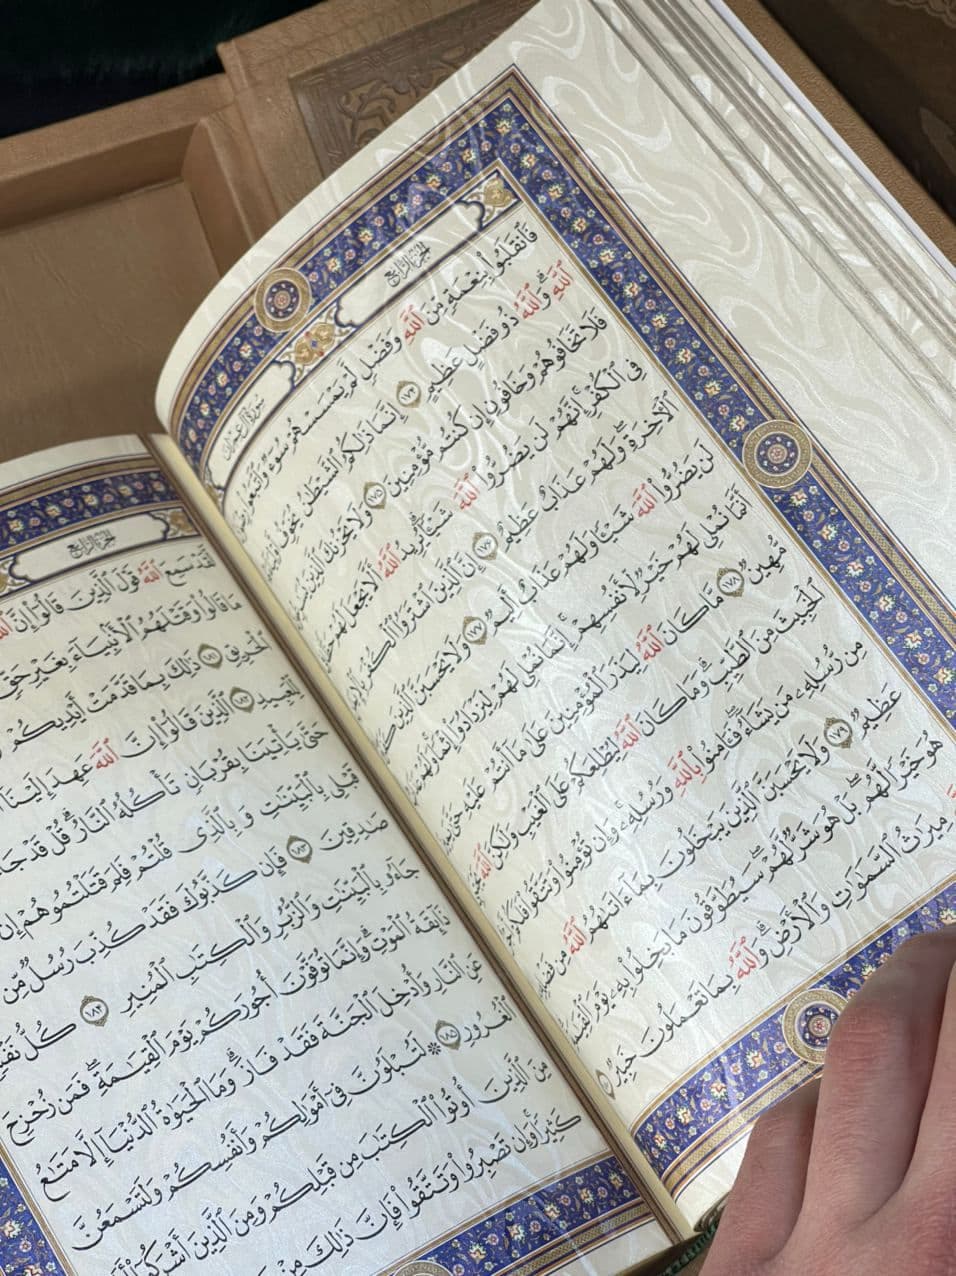 الجزء الرابع
سورة آل عمران
فَٱنقَلَبُوا۟ بِنِعْمَةٍ مِّنَ ٱللَّهِ وَفَضْلٍ لَّمْ يَمْسَسْهُمْ سُوٓءٌ وَٱتَّبَعُوا۟
ٱللَّهِ وَٱللَّهُ ذُو فَضْلٍ عَظِيمٍ ١٧٤ إِنَّمَا ذَٰلِكُمُ ٱلشَّيْطَٰنُ يُخَوِّفُ
فَلَا تَخَافُوهُمْ وَخَافُونِ إِن كُنتُم مُّؤْمِنِينَ ١٧٥ وَلَا يَحْزُنكَ ٱلَّذِينَ يُسَٰرِعُونَ
فِى ٱلْكُفْرِ إِنَّهُمْ لَن يَضُرُّوا۟ ٱللَّهَ شَيْـًٔا يُرِيدُ ٱللَّهُ أَلَّا يَجْعَلَ لَهُمْ حَظًّا فِى
ٱلْـَٔاخِرَةِ وَلَهُمْ عَذَابٌ عَظِيمٌ ١٧٦ إِنَّ ٱلَّذِينَ ٱشْتَرَوُا۟ ٱلْكُفْرَ بِٱلْإِيمَٰنِ
لَن يَضُرُّوا۟ ٱللَّهَ شَيْـًٔا وَلَهُمْ عَذَابٌ أَلِيمٌ ١٧٧ وَلَا يَحْسَبَنَّ ٱلَّذِينَ كَفَرُوٓا۟
أَنَّمَا نُمْلِى لَهُمْ خَيْرٌ لِّأَنفُسِهِمْ إِنَّمَا نُمْلِى لَهُمْ لِيَزْدَادُوٓا۟ إِثْمًا وَلَهُمْ عَذَابٌ
مُّهِينٌ ١٧٨ مَّا كَانَ ٱللَّهُ لِيَذَرَ ٱلْمُؤْمِنِينَ عَلَىٰ مَآ أَنتُمْ عَلَيْهِ حَتَّىٰ يَمِيزَ
ٱلْخَبِيثَ مِنَ ٱلطَّيِّبِ وَمَا كَانَ ٱللَّهُ لِيُطْلِعَكُمْ عَلَى ٱلْغَيْبِ وَلَٰكِنَّ ٱللَّهَ يَجْتَبِى
مِن رُّسُلِهِۦ مَن يَشَآءُ فَـَٔامِنُوا۟ بِٱللَّهِ وَرُسُلِهِۦ وَإِن تُؤْمِنُوا۟ وَتَتَّقُوا۟ فَلَكُمْ أَجْرٌ
عَظِيمٌ ١٧٩ وَلَا يَحْسَبَنَّ ٱلَّذِينَ يَبْخَلُونَ بِمَآ ءَاتَىٰهُمُ ٱللَّهُ مِن فَضْلِهِۦ
هُوَ خَيْرًا لَّهُم بَلْ هُوَ شَرٌّ لَّهُمْ سَيُطَوَّقُونَ مَا بَخِلُوا۟ بِهِۦ يَوْمَ ٱلْقِيَٰمَةِ
مِيرَٰثُ ٱلسَّمَٰوَٰتِ وَٱلْأَرْضِ وَٱللَّهُ بِمَا تَعْمَلُونَ خَبِيرٌ ١٨٠
الجزء الرابع
لَّقَدْ سَمِعَ ٱللَّهُ قَوْلَ ٱلَّذِينَ قَالُوٓا۟ إِنَّ ٱللَّهَ
مَا قَالُوا۟ وَقَتْلَهُمُ ٱلْأَنۢبِيَآءَ بِغَيْرِ حَقٍّ
ٱلْحَرِيقِ ١٨١ ذَٰلِكَ بِمَا قَدَّمَتْ أَيْدِيكُمْ
لِّلْعَبِيدِ ١٨٢ ٱلَّذِينَ قَالُوٓا۟ إِنَّ ٱللَّهَ عَهِدَ إِلَيْنَآ
حَتَّىٰ يَأْتِيَنَا بِقُرْبَانٍ تَأْكُلُهُ ٱلنَّارُ قُلْ قَدْ جَآءَكُمْ
قَبْلِى بِٱلْبَيِّنَٰتِ وَبِٱلَّذِى قُلْتُمْ فَلِمَ قَتَلْتُمُوهُمْ إِن
صَٰدِقِينَ ١٨٣ فَإِن كَذَّبُوكَ فَقَدْ كُذِّبَ رُسُلٌ مِّن
جَآءُو بِٱلْبَيِّنَٰتِ وَٱلزُّبُرِ وَٱلْكِتَٰبِ ٱلْمُنِيرِ ١٨٤ كُلُّ نَفْسٍ
ذَآئِقَةُ ٱلْمَوْتِ وَإِنَّمَا تُوَفَّوْنَ أُجُورَكُمْ يَوْمَ ٱلْقِيَٰمَةِ فَمَن زُحْزِحَ
عَنِ ٱلنَّارِ وَأُدْخِلَ ٱلْجَنَّةَ فَقَدْ فَازَ وَمَا ٱلْحَيَوٰةُ ٱلدُّنْيَآ إِلَّا مَتَٰعُ
ٱلْغُرُورِ ١٨٥ ۞ لَتُبْلَوُنَّ فِىٓ أَمْوَٰلِكُمْ وَأَنفُسِكُمْ وَلَتَسْمَعُنَّ
مِنَ ٱلَّذِينَ أُوتُوا۟ ٱلْكِتَٰبَ مِن قَبْلِكُمْ وَمِنَ ٱلَّذِينَ أَشْرَكُوٓا۟
كَثِيرًا وَإِن تَصْبِرُوا۟ وَتَتَّقُوا۟ فَإِنَّ ذَٰلِكَ مِنْ